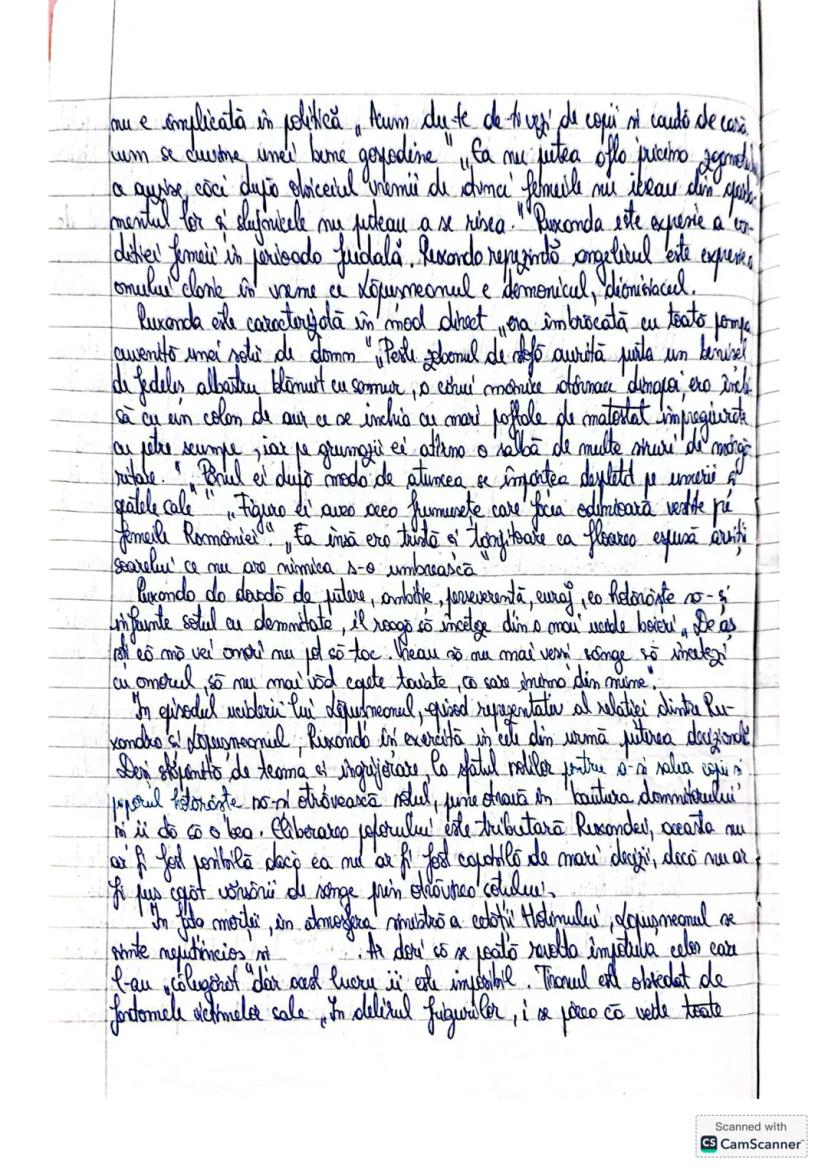 nu e implicată în politică „Acum du-te de-ți vezi de copii și caută de casă
cum se cuvine unei bune gospodine" „Ea nu putea afla pricina zgomotului
a auzise căci după obiceiul vremii de atunci femeile nu ieșeau din aparta-
mentul lor și slujnicele nu puteau a se risca." Ruxanda este expresie a con-
diției femeii în perioada feudală. Ruxanda reprezintă angelicul este expresia
omului clasic în vreme ce Lăpușneanul e demonicul, dionisiacul.
Ruxanda este caracterizată în mod direct „era îmbrăcată cu toată pompa
cuvenită unei soții de domn" „Peste zobonul de stofă aurită purta un benișel
de felendreș albastru blănuit cu samur, a cărui mânice atârnau dinapoi, era încin-
să cu un colan de aur ce se închia cu mari paftale de matostat împregiurate
cu petre scumpe, iar pe grumazii ei atârna o salbă de multe șiruri de mărgă-
ritare." „Părul ei după moda de atuncea se împărțea despletit pe umerii și
spatele sale" „Figura ei avea acea frumusețe care făcea odinioară vestite pe
femeile României". „Ea însă era tristă și tânjitoare ca floarea expusă arșiții
soarelui ce nu are nimica s-o umbrească"
Ruxanda dă dovadă de putere, ambiție, perseverență, curaj, ea hotărăște să-și
înfrunte soțul cu demnitate, îl roagă să înceteze din a mai ucide boieri „De aș
ști că mă vei omorî nu pot să tac. Vreau să nu mai verși sânge să încetezi
cu omorul, să nu mai văd capete tăiate, că sare inima din mine".
În episodul uciderii lui Lăpușneanul, episod reprezentativ al relației dintre Ru-
xandra și Lăpușneanul, Ruxanda își exercită în cele din urmă puterea decizională.
Deși stăpânită de teamă și îngrijorare, la sfatul soților pentru a-și salva copii și
poporul hotărăște să-și otrăvească soțul, pune otravă în băutura domnitorului
și îi dă să o bea. Eliberarea poporului este tributară Ruxandei, aceasta nu
ar fi fost posibilă dacă ea nu ar fi fost capabilă de mari decizii, dacă nu ar
fi pus capăt vărsării de sânge prin otrăvirea soțului.
În fața morții, în atmosfera sinistră a cetății Hotinului, Lăpușneanul se
simte neputincios și . Ar dori să se poată revolta împotriva celor care
l-au „călugărit" dar acest lucru îi este imposibil. Tiranul est obsedat de
fantomele victimelor sale „In delirul frigurilor, i se părea că vede toate
Scanned with
CS CamScanner